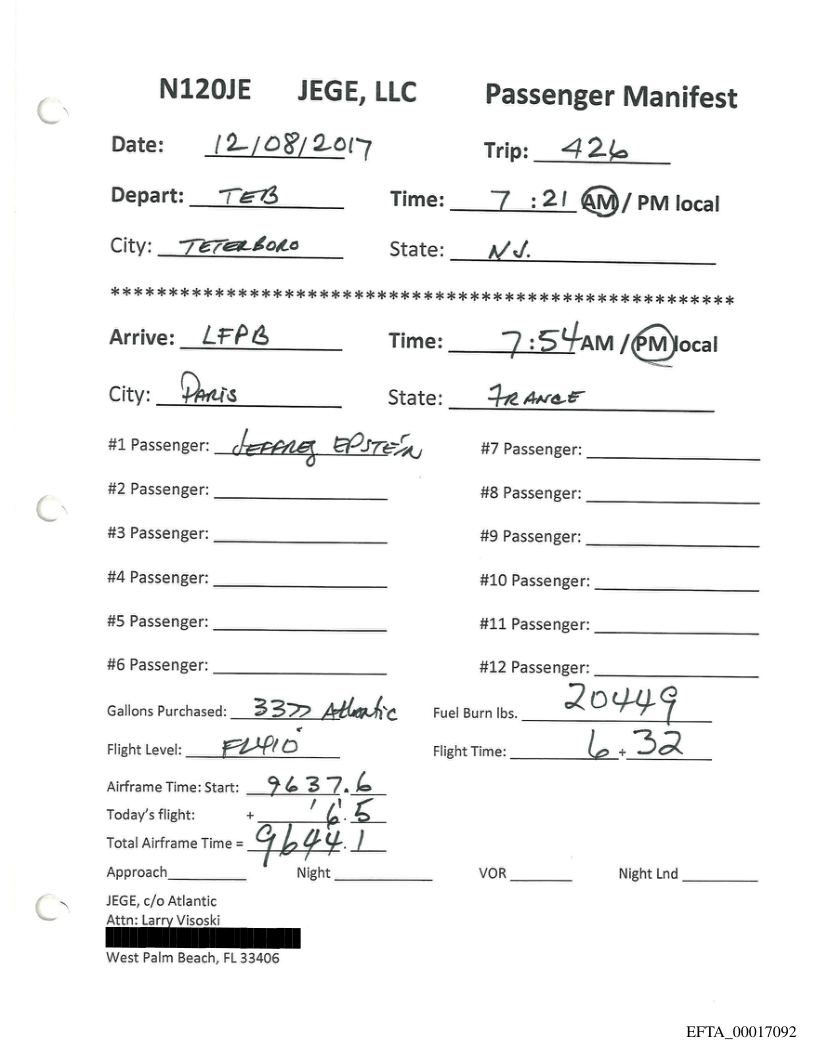 N120JE JEGE, LLC Passenger Manifest
Date: 12/08/2017 Trip: 426
Depart: TEB Time: 7:21 AM / PM local
City: TETERBORO State: NJ.
******************************************************
Arrive: LFPB Time: 7:54 AM / PM local
City: PARIS State: FRANCE
#1 Passenger: JEFFREY EPSTEIN #7 Passenger:
#2 Passenger: #8 Passenger:
#3 Passenger: #9 Passenger:
#4 Passenger: #10 Passenger:
#5 Passenger: #11 Passenger:
#6 Passenger: #12 Passenger:
Gallons Purchased: Atlantic Fuel Burn lbs. 20449
Flight Level: FL410 Flight Time: 6 + 32
Airframe Time: Start: 9637.6
Today's flight: + 6.5
Total Airframe Time = 9644.1
Approach Night VOR Night Lnd
JEGE, c/o Atlantic
Attn: Larry Visoski
West Palm Beach, FL 33406
EFTA_00017092